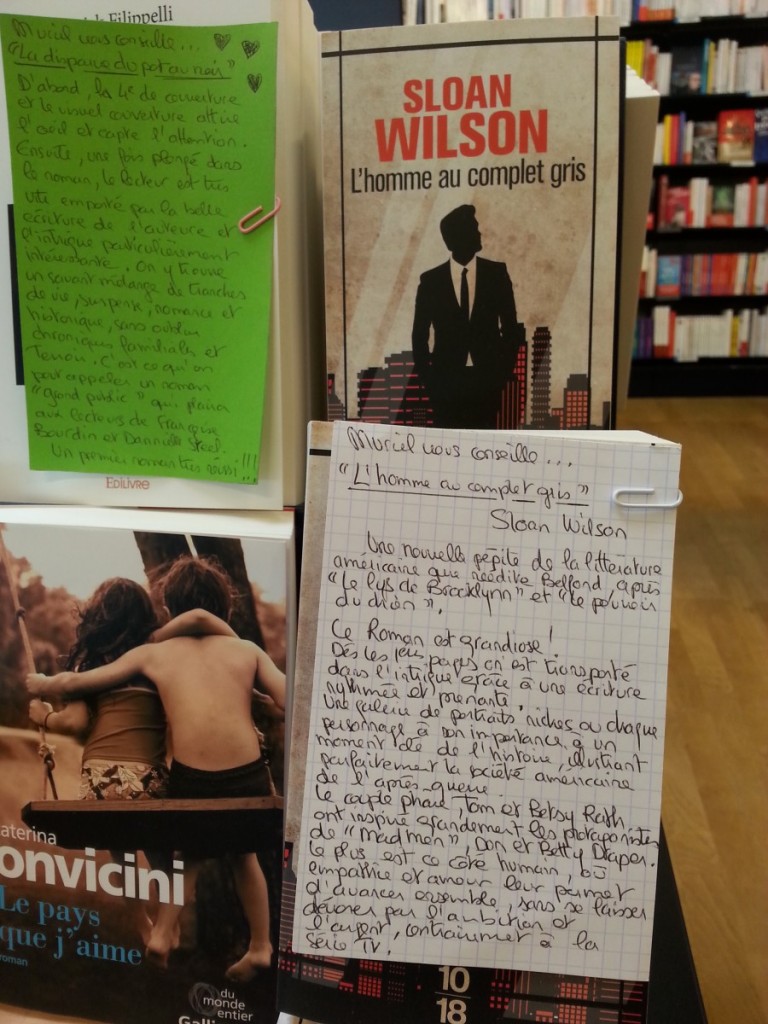 Filippelli
Muriel vous conseille...
"La disparue du pot au noir"
D'abord, la 4e de couverture
et le visuel couverture attire
l'œil et capte l'attention.
Ensuite, une fois plongé dans
le roman, le lecteur est très
vite emporté par la belle
écriture de l'auteure et
l'intrigue particulièrement
intéressante. On y trouve
un savant mélange de tranches
de vie, suspense, romance et
historique, sans oublier
chroniques familiales et
Terroir. C'est ce qu'on
peut appeler un roman
"grand public" qui plaira
aux lecteurs de Françoise
Bourdin et Danielle Steel.
Un premier roman très réussi!!!
EDILIVRE
SLOAN
WILSON
L'homme au complet gris
Muriel vous conseille...
"L'homme au complet gris"
Sloan Wilson
Une nouvelle pépite de la littérature
américaine que réédite Belfond, après
"Le lys de Brooklynn" et "Le pouvoir
du chien".
Ce Roman est grandiose!
Dès les 1ères pages on est transporté
dans l'intrigue grâce à une écriture
rythmée et prenante.
Une galerie de portraits riches où chaque
personnage à son importance à un
moment clé de l'histoire, illustrant
parfaitement la société américaine
de l'après-guerre.
Le couple phare, Tom et Betsy Rath,
ont inspiré grandement les protagonistes
de "Mad men", Don et Betty Draper.
Le plus est ce côté humain, où
empathie et amour leur permet
d'avancer ensemble, sans se laisser
dévorer par l'ambition et
l'argent, contrairement à la
série TV.
10
18
aterina
onvicini
Le pays
que j'aime
roman
du
monde
entier
Galli